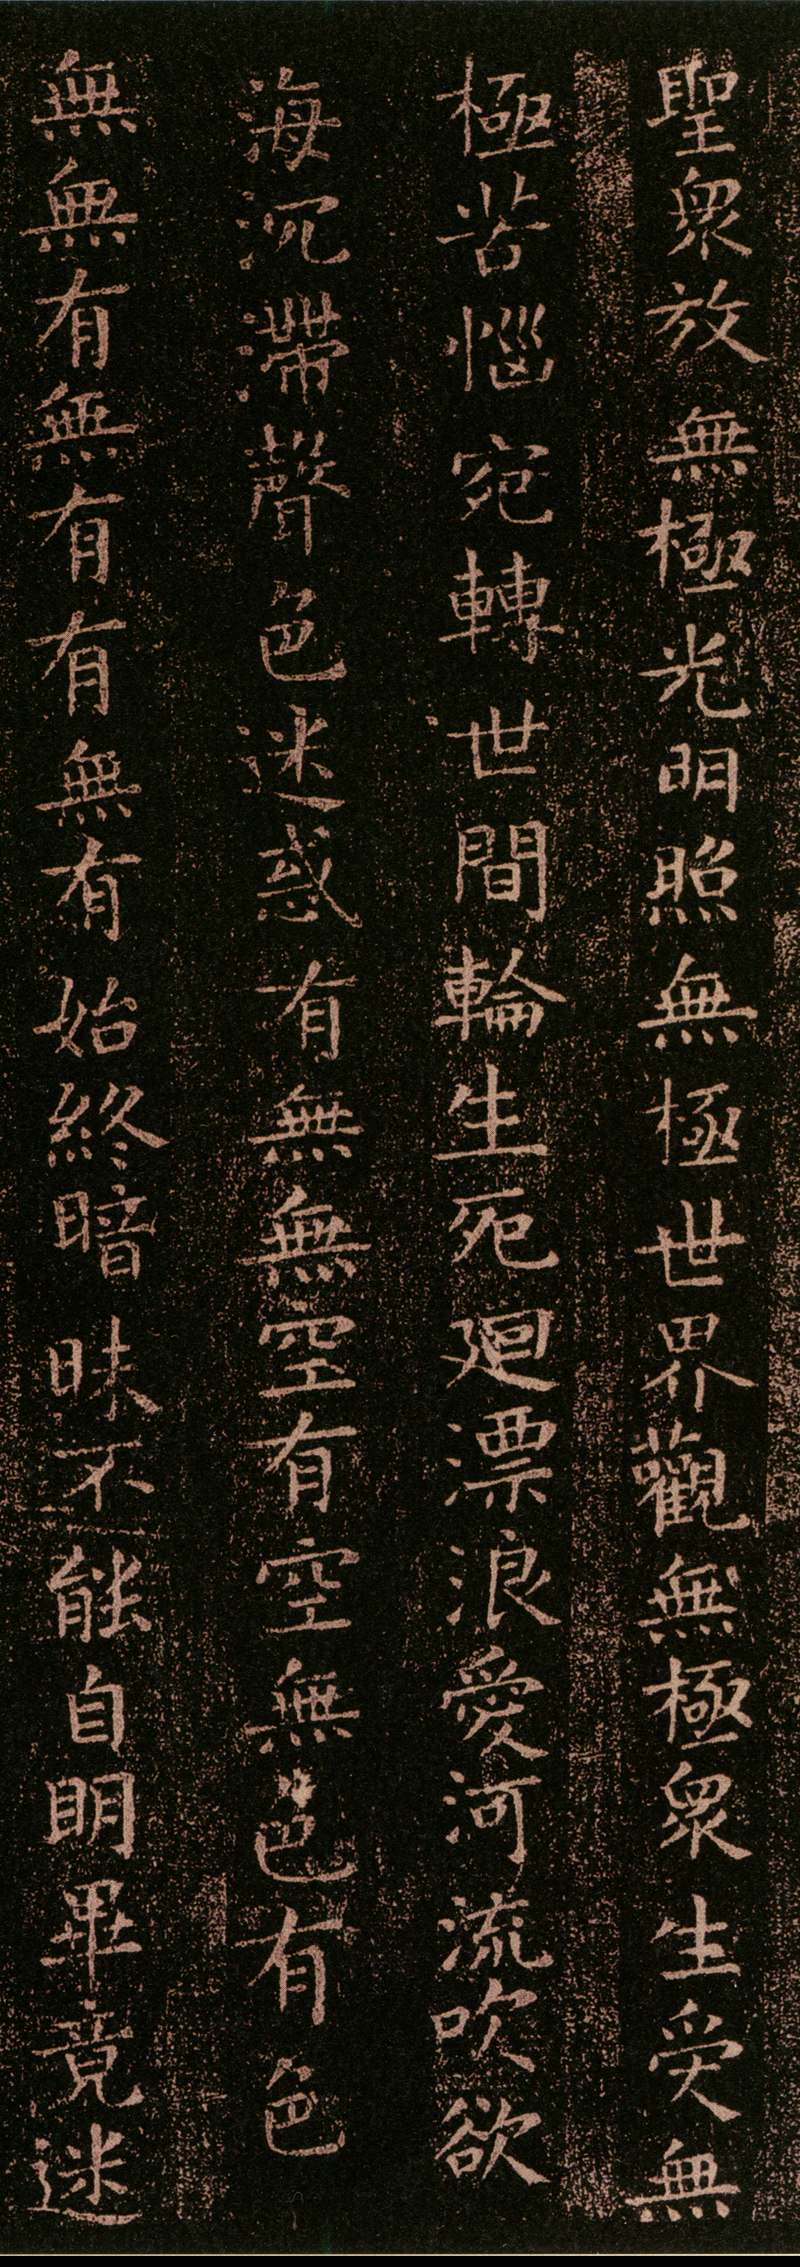 聖衆放無極光明照無極世界觀無極衆生受無
極苦惱宛轉世間輪生死廻漂浪愛河流吹欲
海沉滯聲色迷惑有無無空有空無色有色
無無有無有有無有始終暗昧不能自明畢竟迷